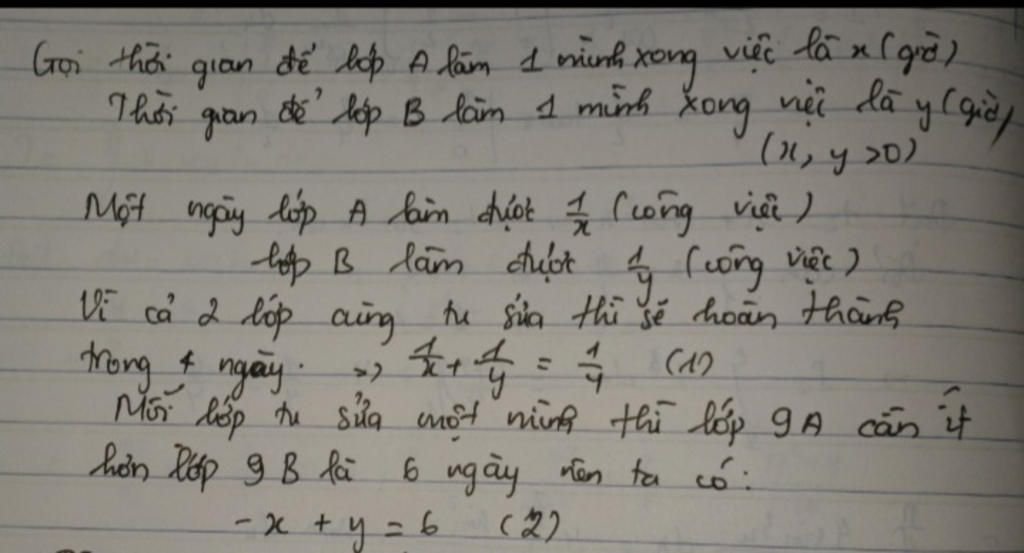 Gọi thời gian để lớp A làm 1 mình xong việc là x (giờ)
Thời gian để lớp B làm 1 mình xong việc là y (giờ)
(x, y >0)
Một ngày lớp A làm được 1/x (công việc)
lớp B làm được 1/y (công việc)
Vì cả 2 lớp cùng tu sửa thì sẽ hoàn thành
trong 4 ngày. => 1/x + 1/y = 1/4 (1)
Mỗi lớp tu sửa một mình thì lớp 9A cần ít
hơn lớp 9B là 6 ngày nên ta có:
-x + y = 6 (2)